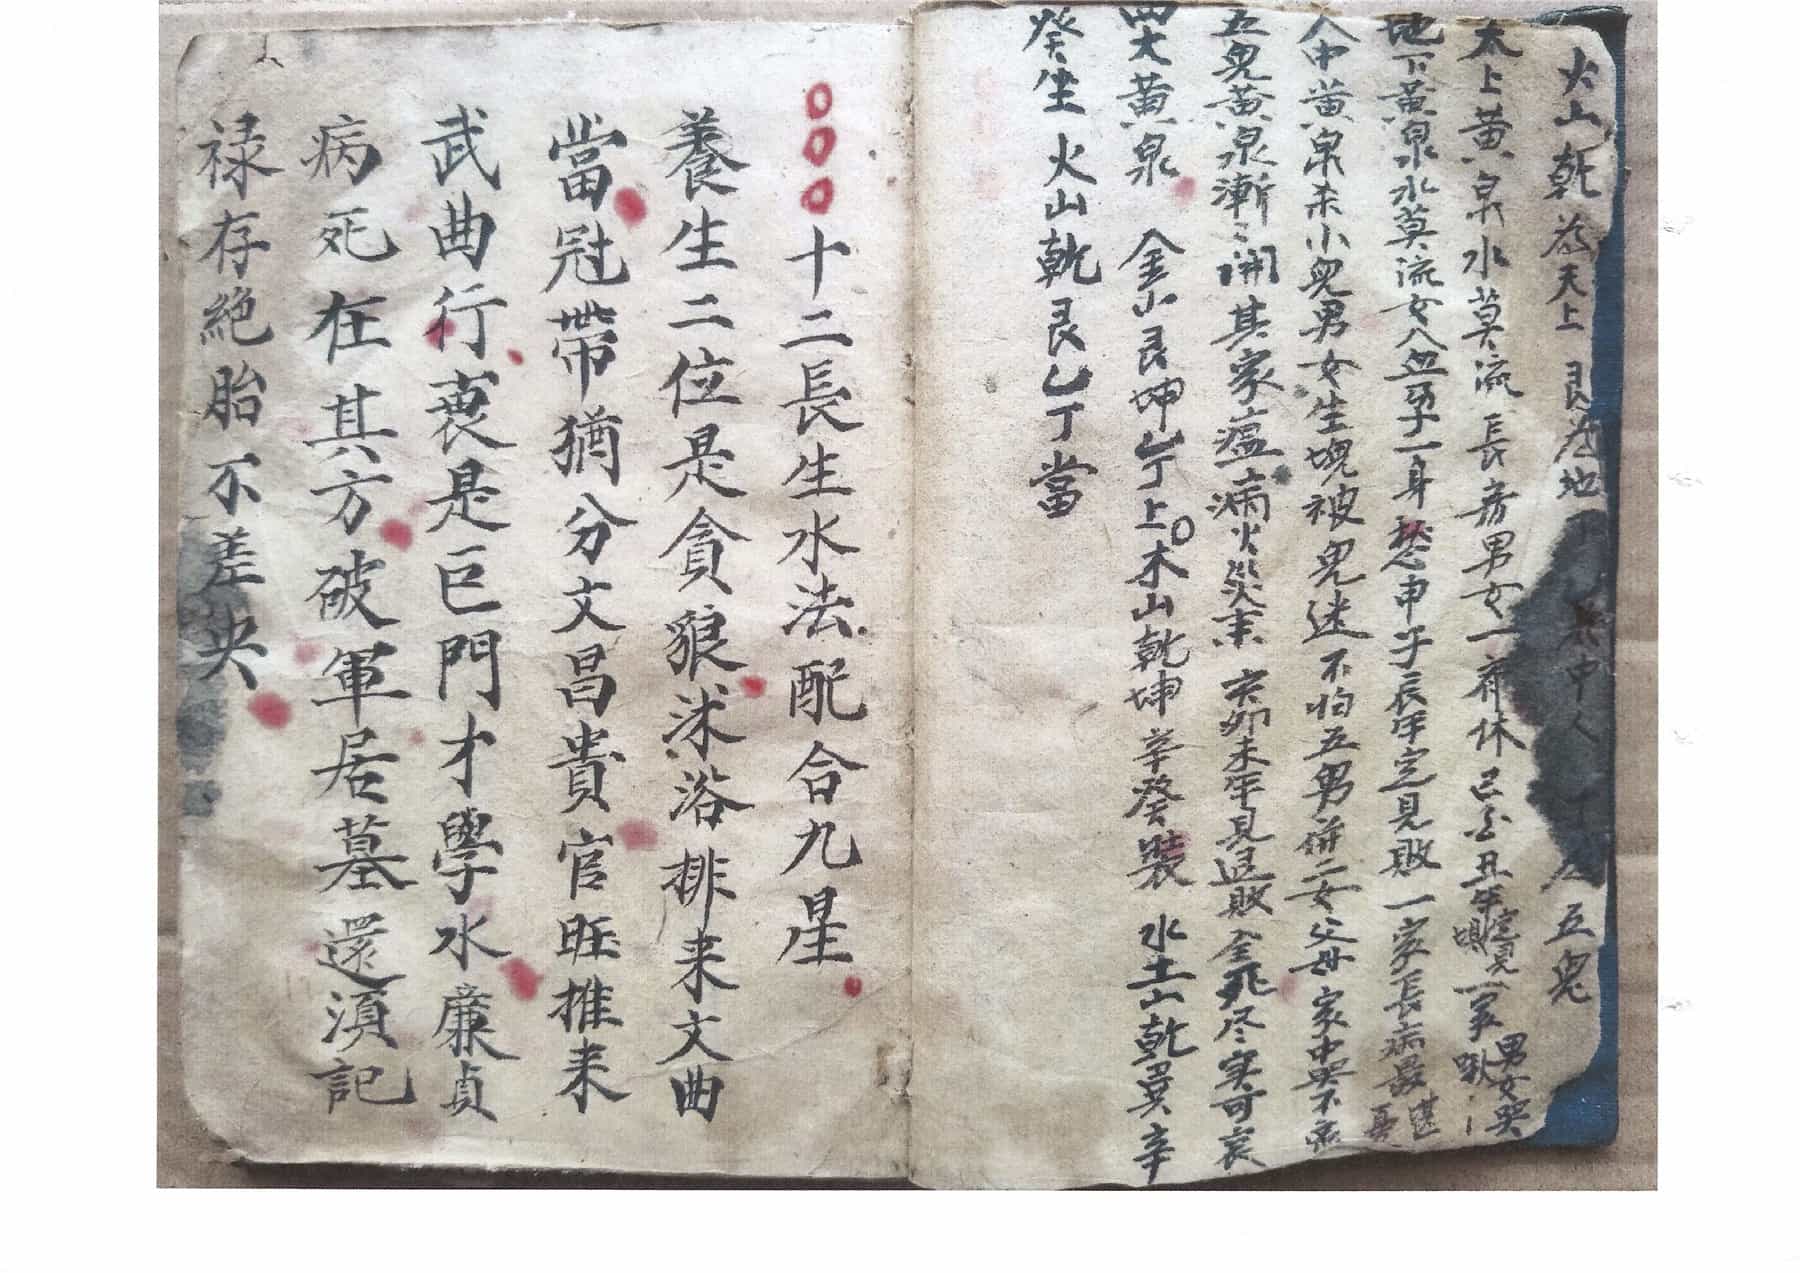 火山乾為天上 艮為地 中人 五鬼
太上黃泉水莫流長房男女一齊休巳酉丑年定見一家 男女哭
地下黃泉水莫流女人血孕一身愁申子辰年定見敗一家長病最堪憂
人中黃泉杀小兒男女生塊被鬼迷不怕五男併二女父母家中哭不
五鬼黃泉漸漸開其家瘟病火災来亥卯未年見退敗全死尽实可哀
四大黃泉 金山艮坤乙丁上〇木山乾坤辛癸裝 水土山乾巽辛
癸坐 火山乾艮乙丁當
〇〇〇十二長生水法配合九星
養生二位是貪狼沐浴排来文曲
當冠帶猶分文昌貴官旺推来
武曲行衰是巨門才學水廉貞
病死在其方破軍居墓還須記
禄存絶胎不差央